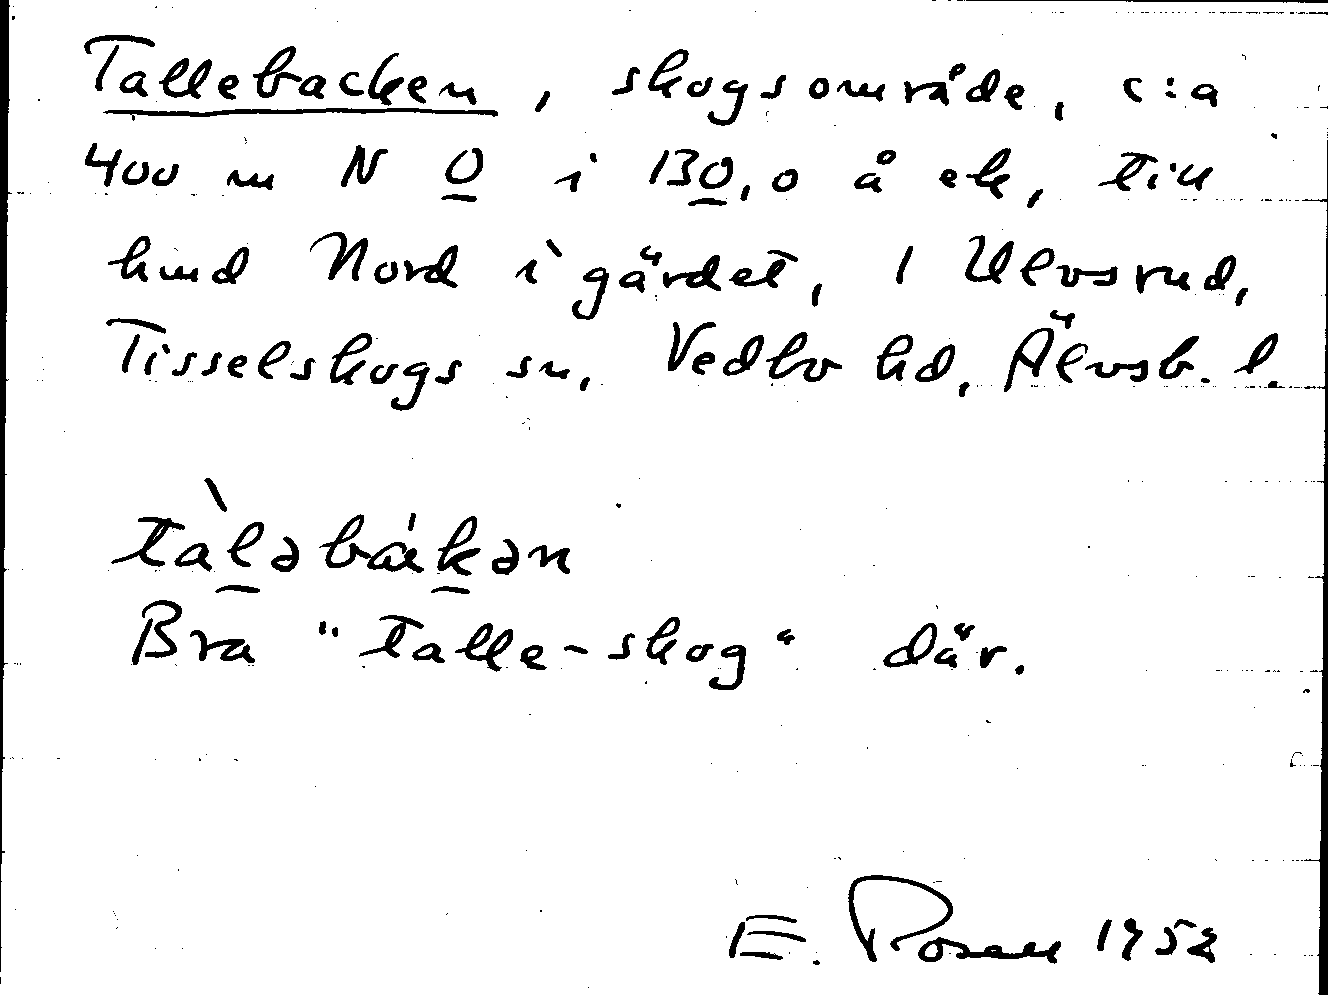 Tallebacken, skogsområde, c:a
400 m N O i 130,0 å ek, till
hmd Nord i gärdet, 1 Ulvsrud,
Tisselskogs sn, Vedbo hd, Älvsb. l.
tàləbákən
Bra "talle-skog" där.
E. Rosell 1952